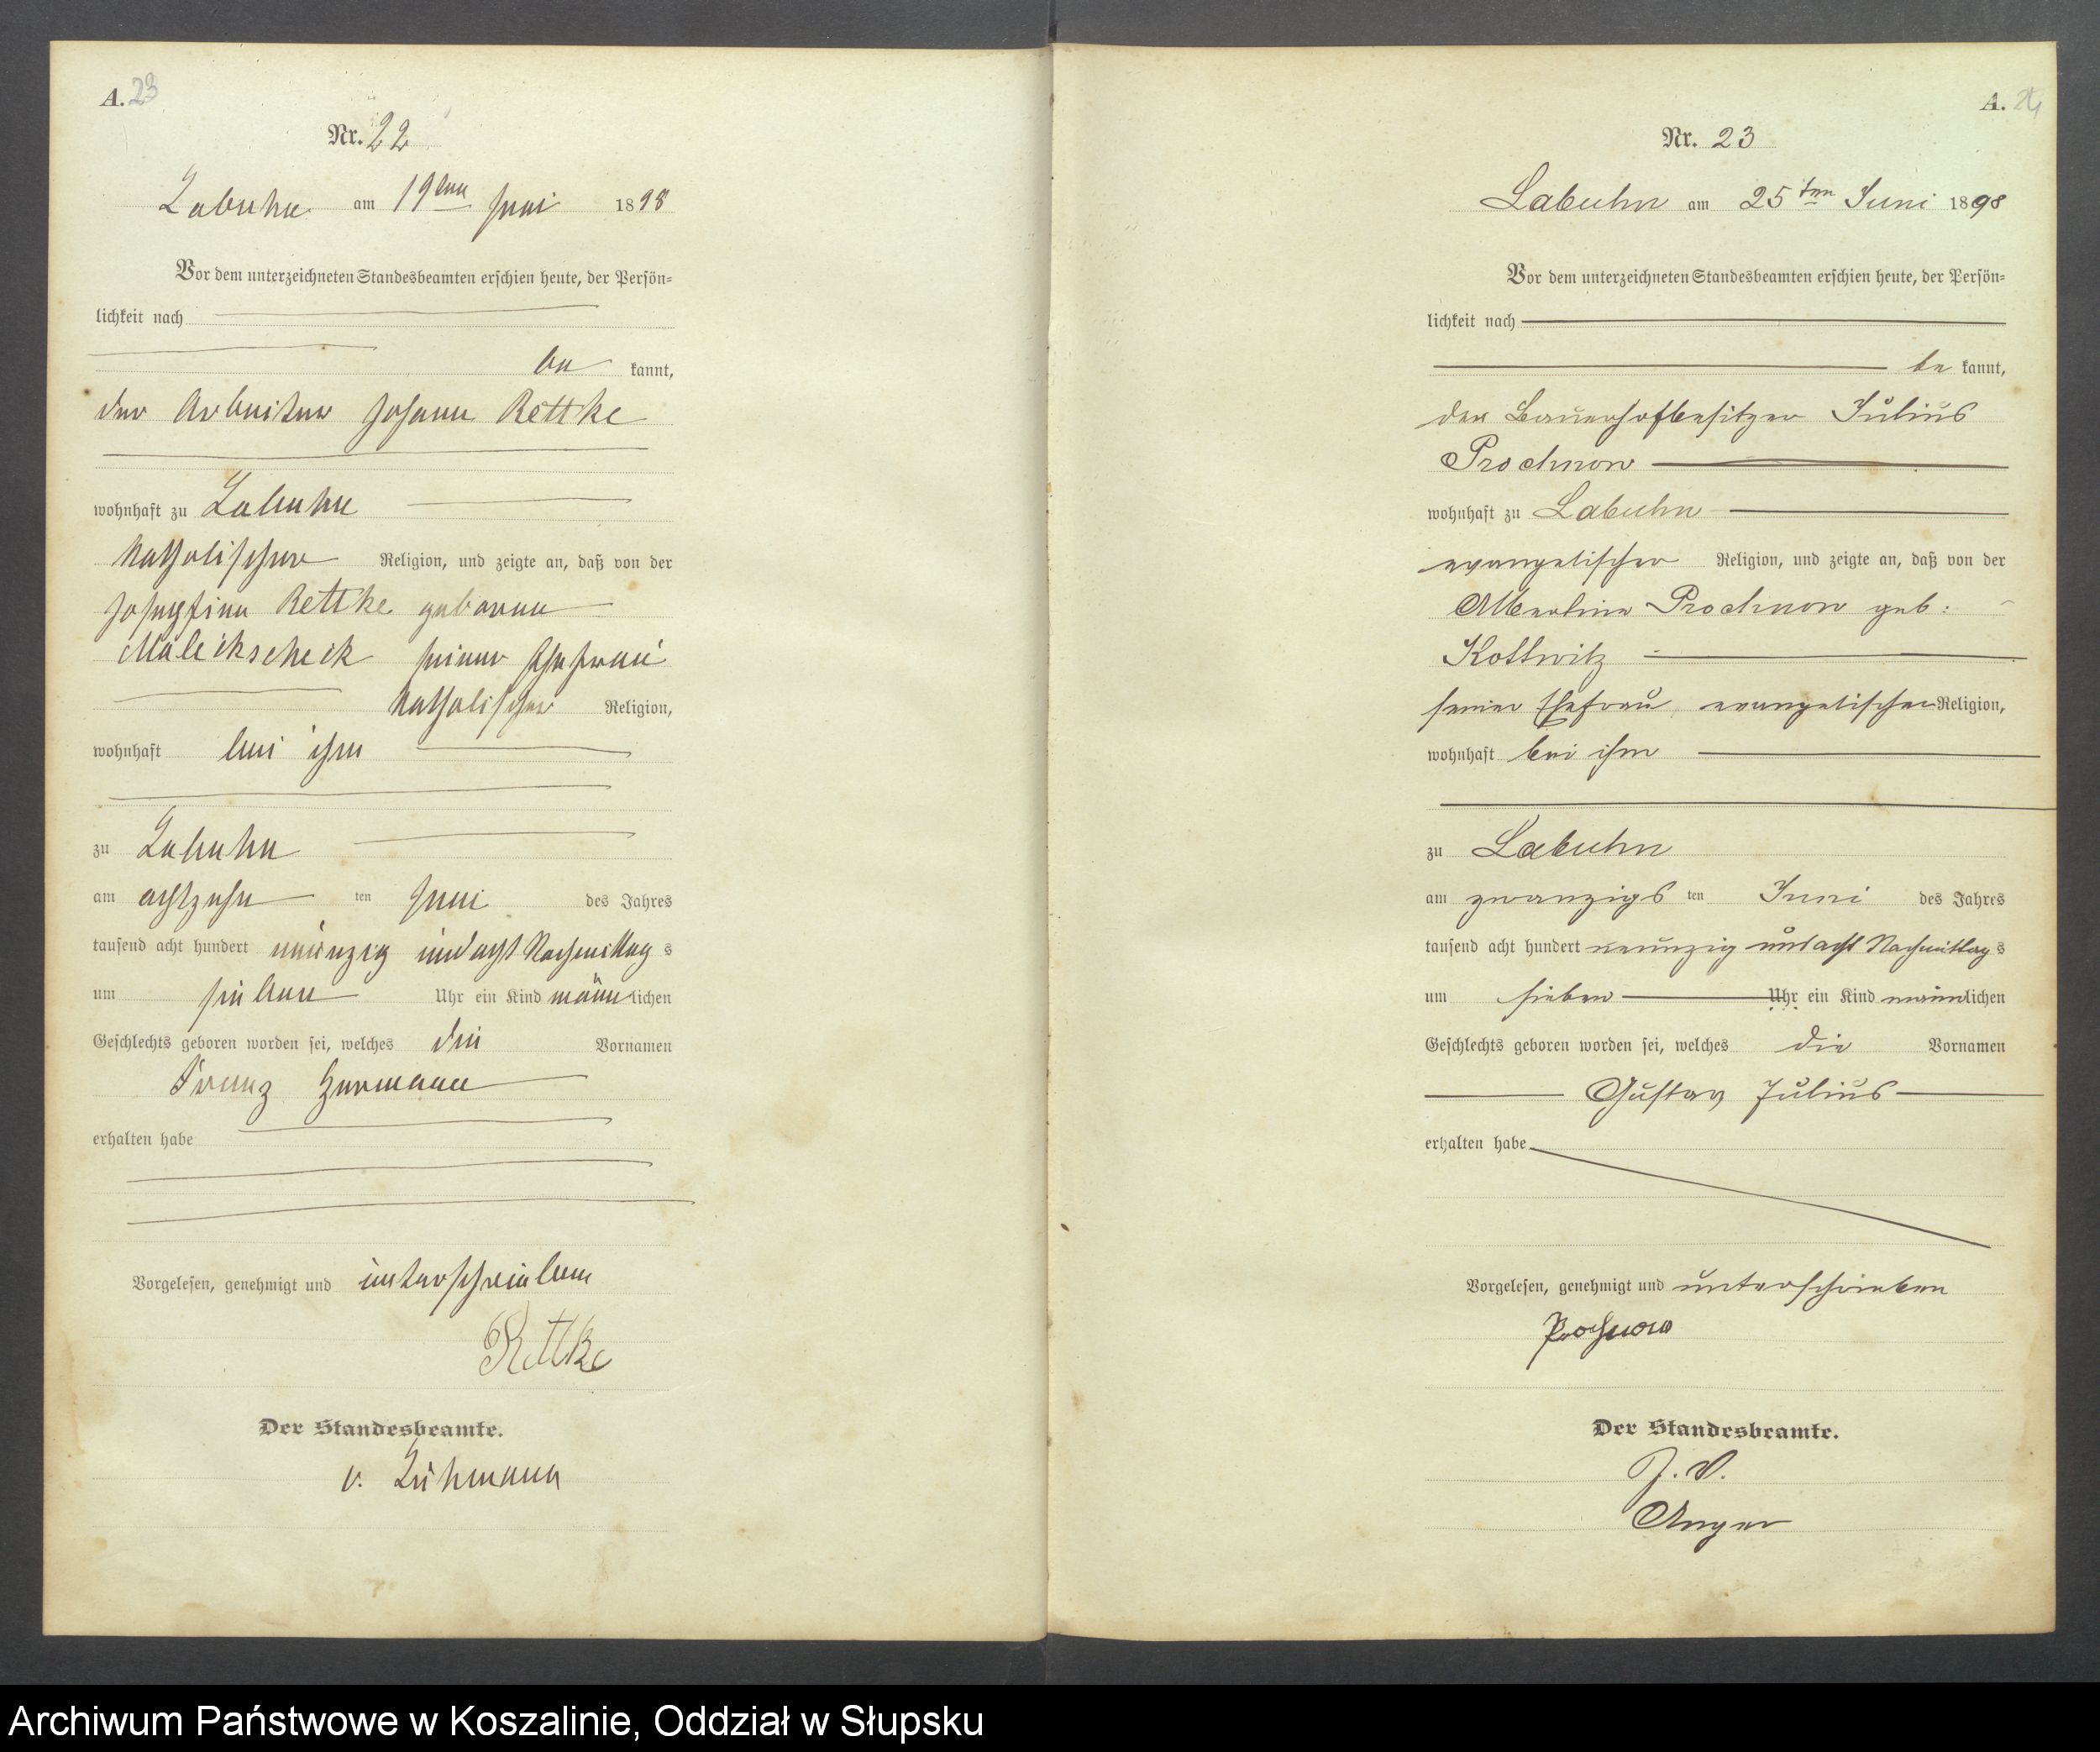 A. 23
Nr. 22
Labuhn am 19ten Juni 1898
Vor dem unterzeichneten Standesbeamten erschien heute, der Persön-
lichkeit nach
be kannt,
der Arbeiter Johann Rettke
wohnhaft zu Labuhn
katholischer Religion, und zeigte an, daß von der
Josephine Rettke geborene
Maleikscheck seiner Ehefrau
katholischer Religion,
wohnhaft bei ihm
zu Labuhn
am achtzehn ten Juni des Jahres
tausend acht hundert neunzig und acht Nachmittag s
um sieben Uhr ein Kind männlichen
Geschlechts geboren worden sei, welches die Vornamen
Franz Hermann
erhalten habe
Vorgelesen, genehmigt und unterschrieben
Rettke
Der Standesbeamte.
v. Lühmann
A. 24
Nr. 23
Labuhn am 25ten Juni 1898
Vor dem unterzeichneten Standesbeamten erschien heute, der Persön-
lichkeit nach
be kannt,
der Bauerhofbesitzer Julius
Prochnow
wohnhaft zu Labuhn
evangelischer Religion, und zeigte an, daß von der
Albertine Prochnow geb:
Kottwitz
seiner Ehefrau, evangelischer Religion,
wohnhaft bei ihm
zu Labuhn
am zwanzigs ten Juni des Jahres
tausend acht hundert neunzig und acht Nachmittag s
um sieben Uhr ein Kind männlichen
Geschlechts geboren worden sei, welches die Vornamen
Gustav Julius
erhalten habe
Vorgelesen, genehmigt und unterschrieben
Prochnow
Der Standesbeamte.
J. V.
Anger
Archiwum Państwowe w Koszalinie, Oddział w Słupsku